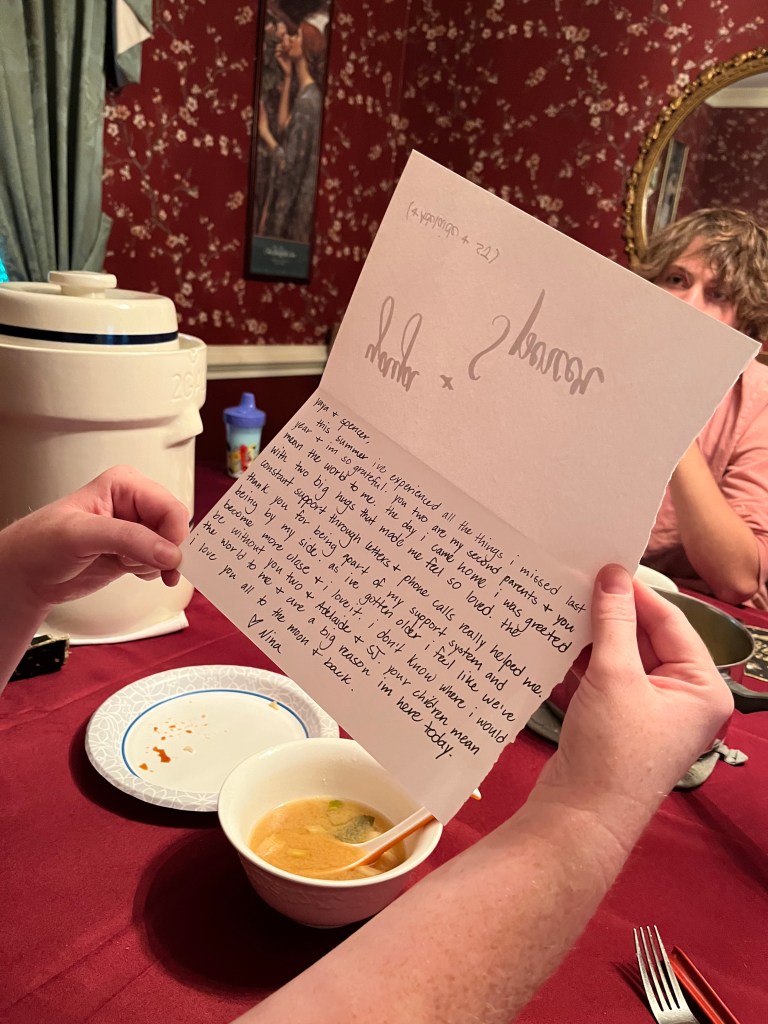 (+ Adelaide + SJ)
Spencer +
yaya + spencer,
this summer i've experienced all the things i missed last
year + im so grateful. you two are my second parents + you
mean the world to me. the day i came home i was greeted
with two big hugs that made me feel so loved. the
constant support through letters + phone calls really helped me.
thank you for being apart of my support system and
being by my side. as i've gotten older i feel like we've
become more close + i love it. i don't know where i would
be without you two + Adelaide + SJ. your children mean
the world to me + are a big reason im here today.
i love you all to the moon + back.
♡ Nina
2G